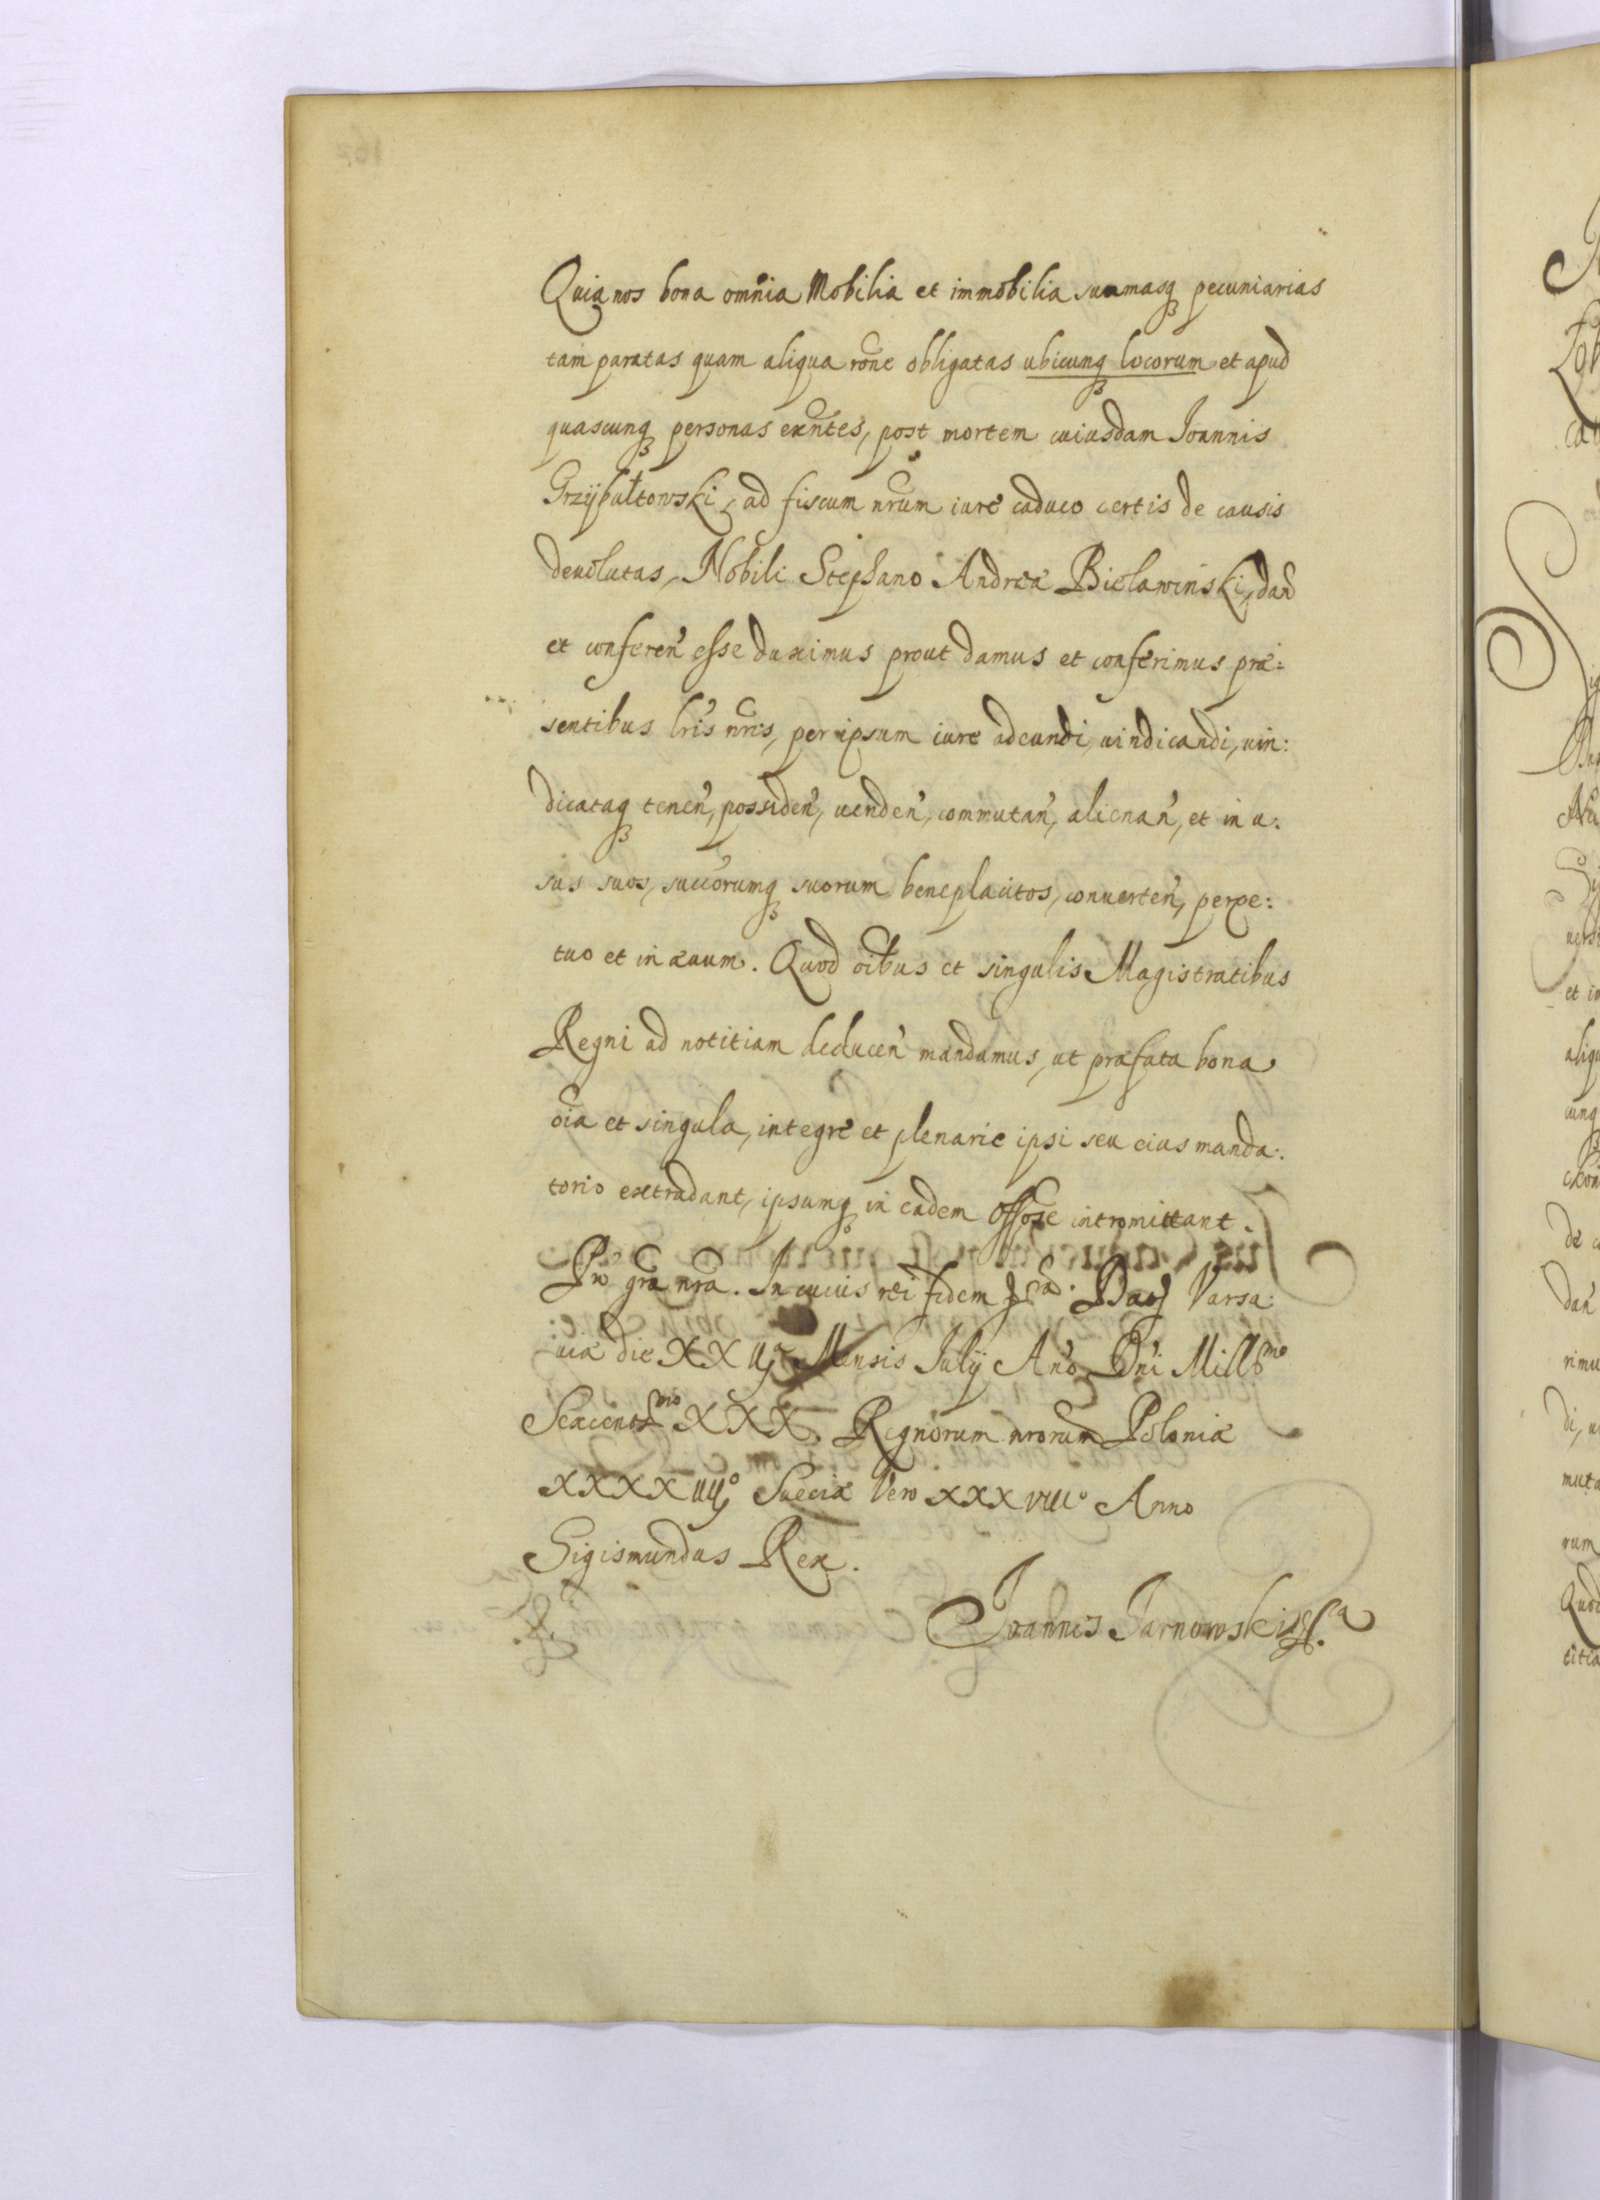 Quia nos bona omnia Mobilia et immobilia summasq pecuniarias
tam paratas quam aliqua rone obligatas ubicunq locorum et apud
quascunq personas exntes, post mortem cuiusdam Joannis
Grzÿbułtowski, ad fiscum nrum iure caduco certis de causis
deuolutas, Nobili Stephano Andreæ Bielawinski, dan
et conferen esse duximus prout damus et conferimus præ:
sentibus lris nris, per ipsum iure adeundi, uindicandi, uin:
dicataq tenen, possiden, uenden, commutan, alienan, et in u:
sus suos, succorumq suorum beneplacitos, conuerten, perpe:
tuo et in æuum. Quod oibus et singulis Magistratibus
Regni ad notitiam deducen mandamus, ut præfata bona
oia et singula, integre et plenarie ipsi seu eius manda:
torio extradant, ipsumq in eadem intromittant.
Pro gra nra. In cuius rei fidem Varsa:
uiæ die Mensis Julÿ Ano Dni Millmo
XXX. Regnorum nrorum Poloniæ
Sueciæ Vero XXXVIIIo Anno
Sigismundus Rex.
Joannes Tarnowski